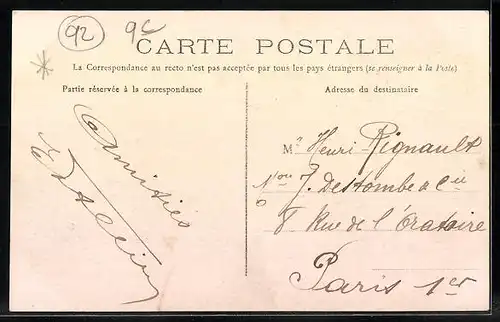 92
9c
CARTE POSTALE
La Correspondance au recto n'est pas acceptée par tous les pays étrangers (se renseigner à la Poste)
Partie réservée à la correspondance
Adresse du destinataire
Amitiés
M. Henri Rignault
J. Destombe & Cie
8 Rue de l'Oratoire
Paris 1er